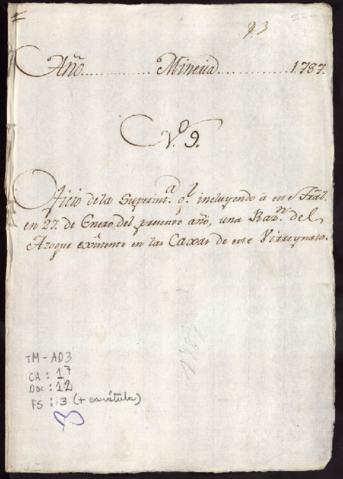 93
Año......... Mineria............ 1787.
N.º 9.
Oficio de la Superint.ª g.l incluyendo à este Trãl.
en 27. de Enero del presente año, una Raz.n del
Azogue existente en las Caxas de este Virreynato.
TM-AD3
CA: 17
Doc: 12
FS: 3 (+ carátula)